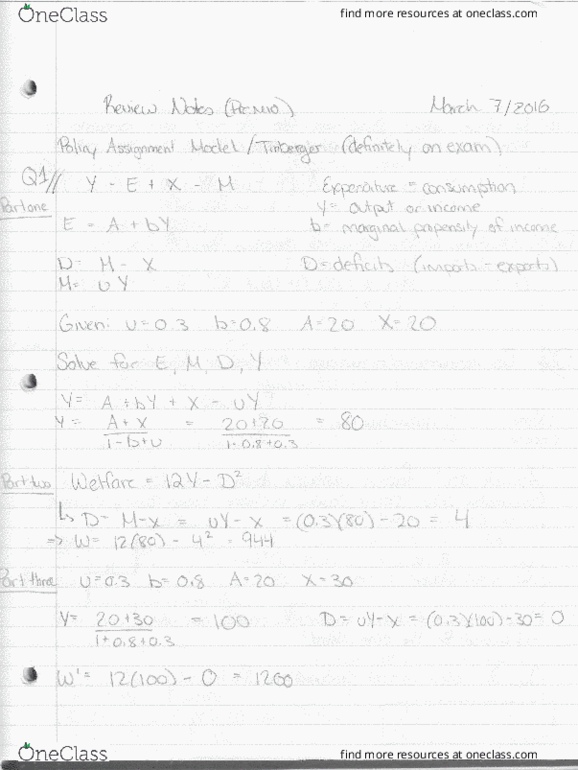 OneClass find more resources at oneclass.com
Review Notes (Pre Mid) March 7/2016
Policy Assignment Model / Tinbergen (definitely on exam)
Q1// Y = E + X - M Expenditure = consumption
Part one Y = output or income
E = A + bY b = marginal propensity of income
D = M - X D = deficits (imports - exports)
M = uY
Given: u = 0.3 b = 0.8 A = 20 X = 20
Solve for E, M, D, Y
Y = A + bY + X - uY
Y = A + X / 1 - b + u = 20 + 20 / 1 - 0.8 + 0.3 = 80
Part two Welfare = 12Y - D²
↳ D = M - X = uY - X = (0.3)(80) - 20 = 4
⇒ W = 12(80) - 4² = 944
Part three u = 0.3 b = 0.8 A = 20 X = 30
Y = 20 + 30 / 1 + 0.8 + 0.3 = 100 D = uY - X = (0.3)(100) - 30 = 0
W' = 12(100) - 0 = 1200
OneClass find more resources at oneclass.com